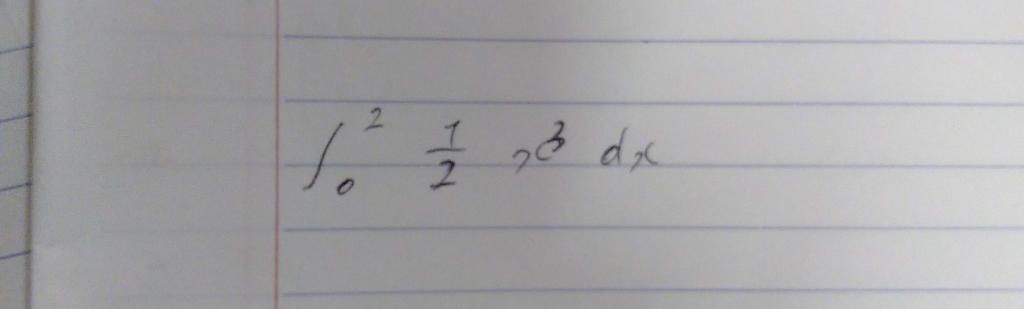 ∫₀² 1/2 x³ dx